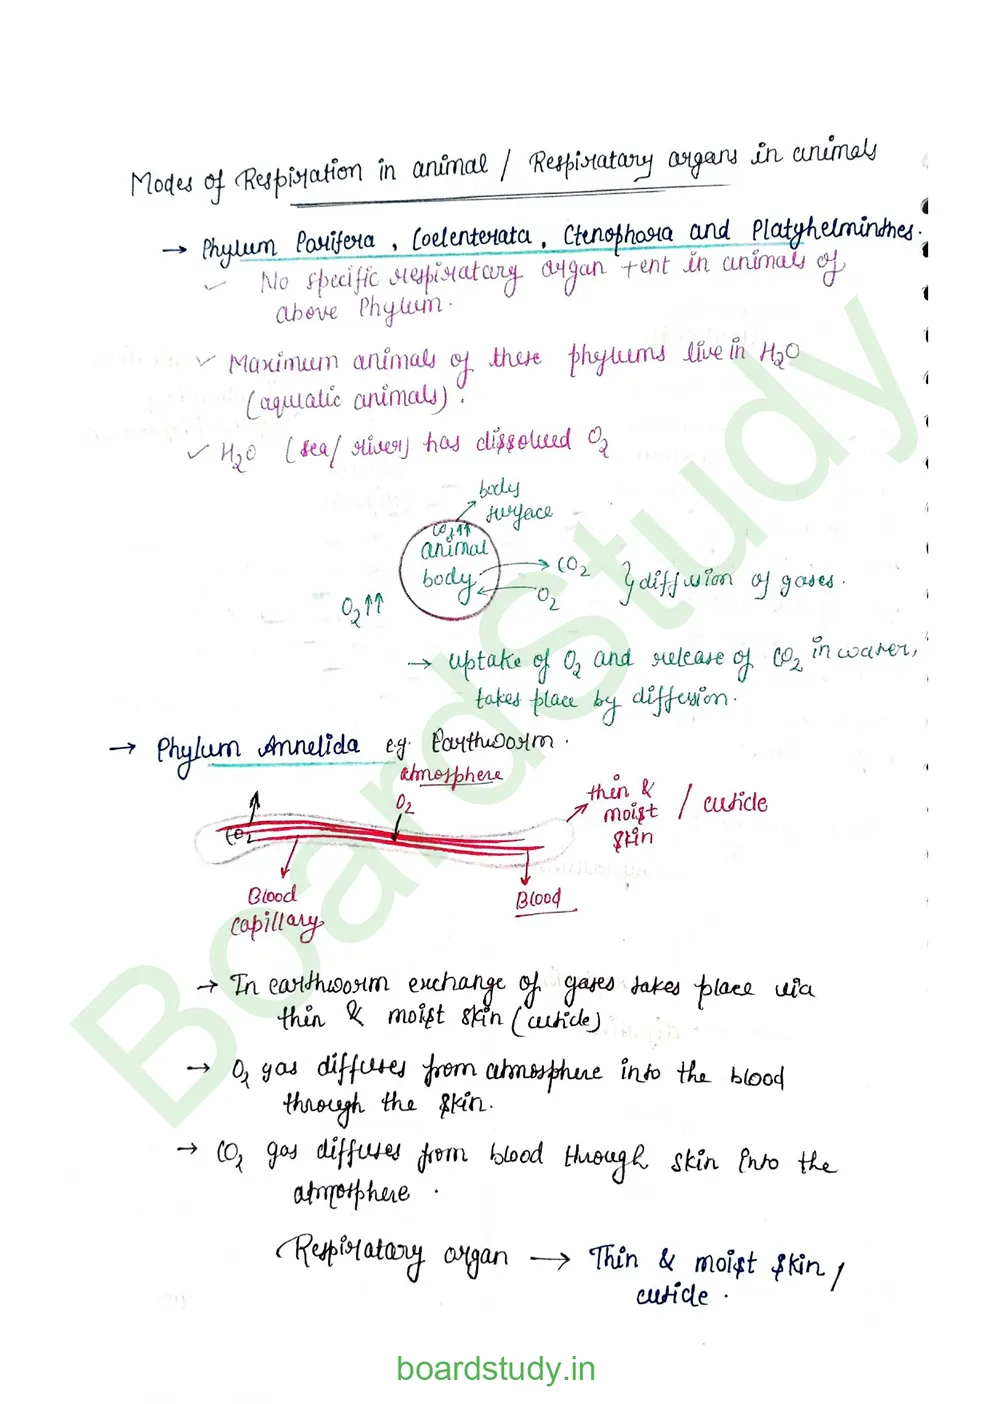 Modes of Respiration in animal / Respiratary organs in animals
→ Phylum Porifera, Coelenterata, Ctenophora and Platyhelminthes.
✓ No specific respiratary organ +ent in animals of
above Phylum.
✓ Maximum animals of these phylums live in H₂O
(aquatic animals).
✓ H₂O (sea/river) has dissolved O₂
body
surface
CO₂↑↑
animal
body
→ CO₂
O₂
} diffusion of gases.
O₂↑↑
→ uptake of O₂ and release of CO₂ in water,
takes place by diffusion.
→ Phylum Annelida e.g. Earthworm.
atmosphere
O₂
thin &
moist / cuticle
skin
CO₂
Blood
capillary
Blood
→ In earthworm exchange of gases takes place via
thin & moist skin (cuticle)
→ O₂ gas diffuses from atmosphere into the blood
through the skin.
→ CO₂ gas diffuses from blood through skin into the
atmosphere.
Respiratary organ → Thin & moist skin /
cuticle.
BoardStudy
boardstudy.in